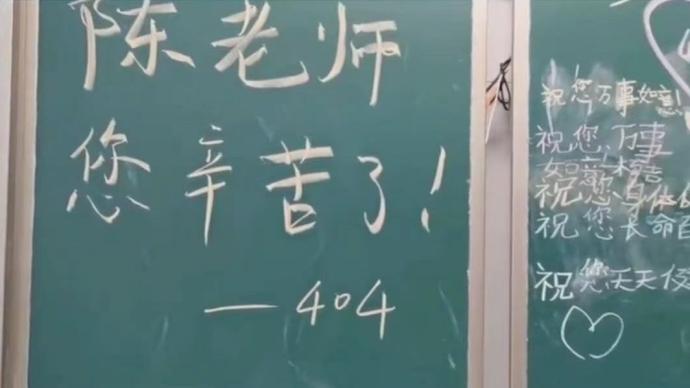 陈老师
您辛苦了!
—404
祝您万事如意!
祝您,万事
如意
祝您身体
祝您长命
祝您天天